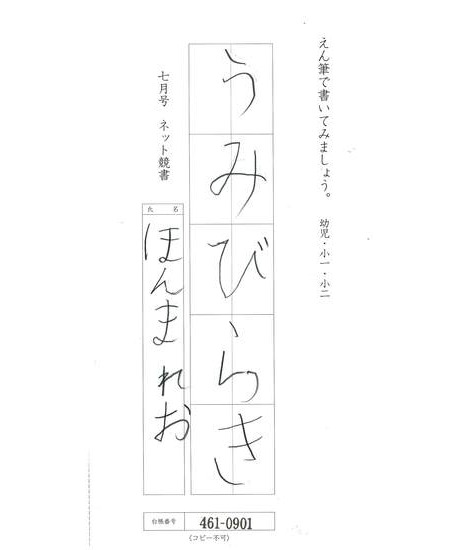 えん筆で書いてみましょう。 幼児・小一・小二
うみびらき
七月号 ネット競書
氏 名
ほんま れお
台帳番号 461-0901
(コピー不可)